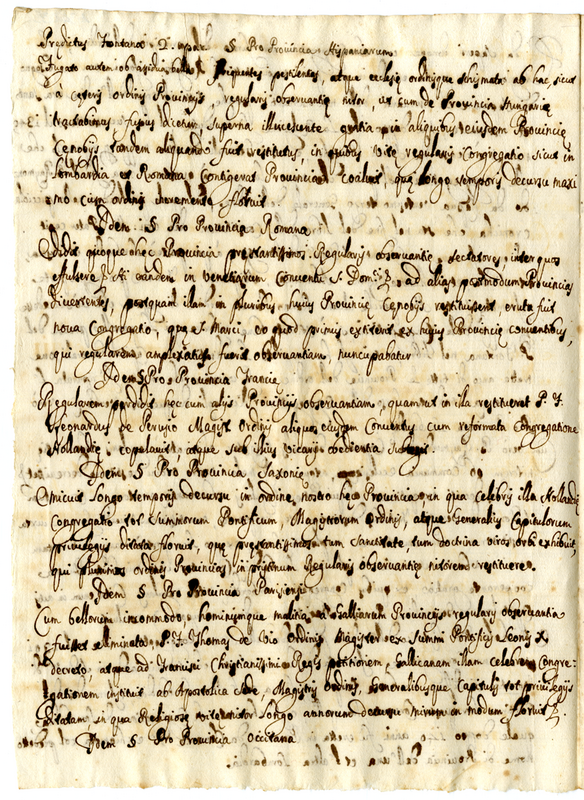 Predictus Fontana 2. par. § Pro Provincia Hispaniarum
Fugato autem ob bella, frequentes pestilentes, atque ecclesię ordinisque schismata ab hac, sicut
à ceteris ordinis Provincijs, regularis observantię nitor, ut cum de Provincia Hungarię
tractabimus fusius dicetur, superna illucesente gratia in aliquibus eiusdem Provincię
Cęnobijs tandem aliquando fuit restitutus, in quibus vitę regularis Congregatio sicut in
Lombardia et Romana contigerat Provincia coaluit, quę longo temporis decursu maxi
mo cum ordinis incremento floruit
Idem § Pro Provincia Romana
Edidit quoque hec Provincia prestantissimos Regularis observantię sectatores, inter quos
effulsere P. Hi tandem in Venetiarum Conventu S. Dom: ad alias postmodum Provincias
divertentes, postquam illam in pluribus huius Provincię Cęnobijs restituissent, eruta fuit
nova Congregatio, que S. Marci, eo quod primus extiterit ex huius Provincię conventibus,
qui regularem amplexatus fuerit observantiam, nuncupabatur
Idem § Pro Provincia Francię
Regularem perdidit hec cum alijs Provincijs observantiam, quam ut in illa restitueret P. F.
Leonardus de Perusio Magister Ordinis aliquos eiusdem Conventus cum reformata Congregatione
Hollandię copulavit, atque sub illius vicarij obedientia
Idem § Pro Provincia Saxonię
Emicuit longo temporis decursu in ordine nostro hec Provincia in qua celebris illa Hollandię
Congregatio tot Summorum Pontificum, Magistrorum Ordinis, atque Generalis Capitulorum
privilegijs ditata floruit, que prestantissimos tum sanctitate tum doctrina viros orbi exhibuit
qui plurimas ordinis Provincias in pristinum Regularis observantię nitorem restituere.
Idem § Pro Provincia Parisiensi
Cum bellorum incommodo, hominumque malitia à Galliarum Provincijs regularis observantia
fuisset eliminata, P. F. Thomas de Vio Ordinis Magister ex Summi Pontificis Leonis X
decreto, atque ad Francisci Christianissimi Regis petitionem, Gallicanam illam celebrem Congre:
gationem instituit ab Apostolica Sede, Magistris Ordinis, Generalibusque Capitulis tot privilegijs
ditatam in qua Religiosę vitę nitor longo annorum decursu mirum in modum floruit
Idem § Pro Provincia Occitana